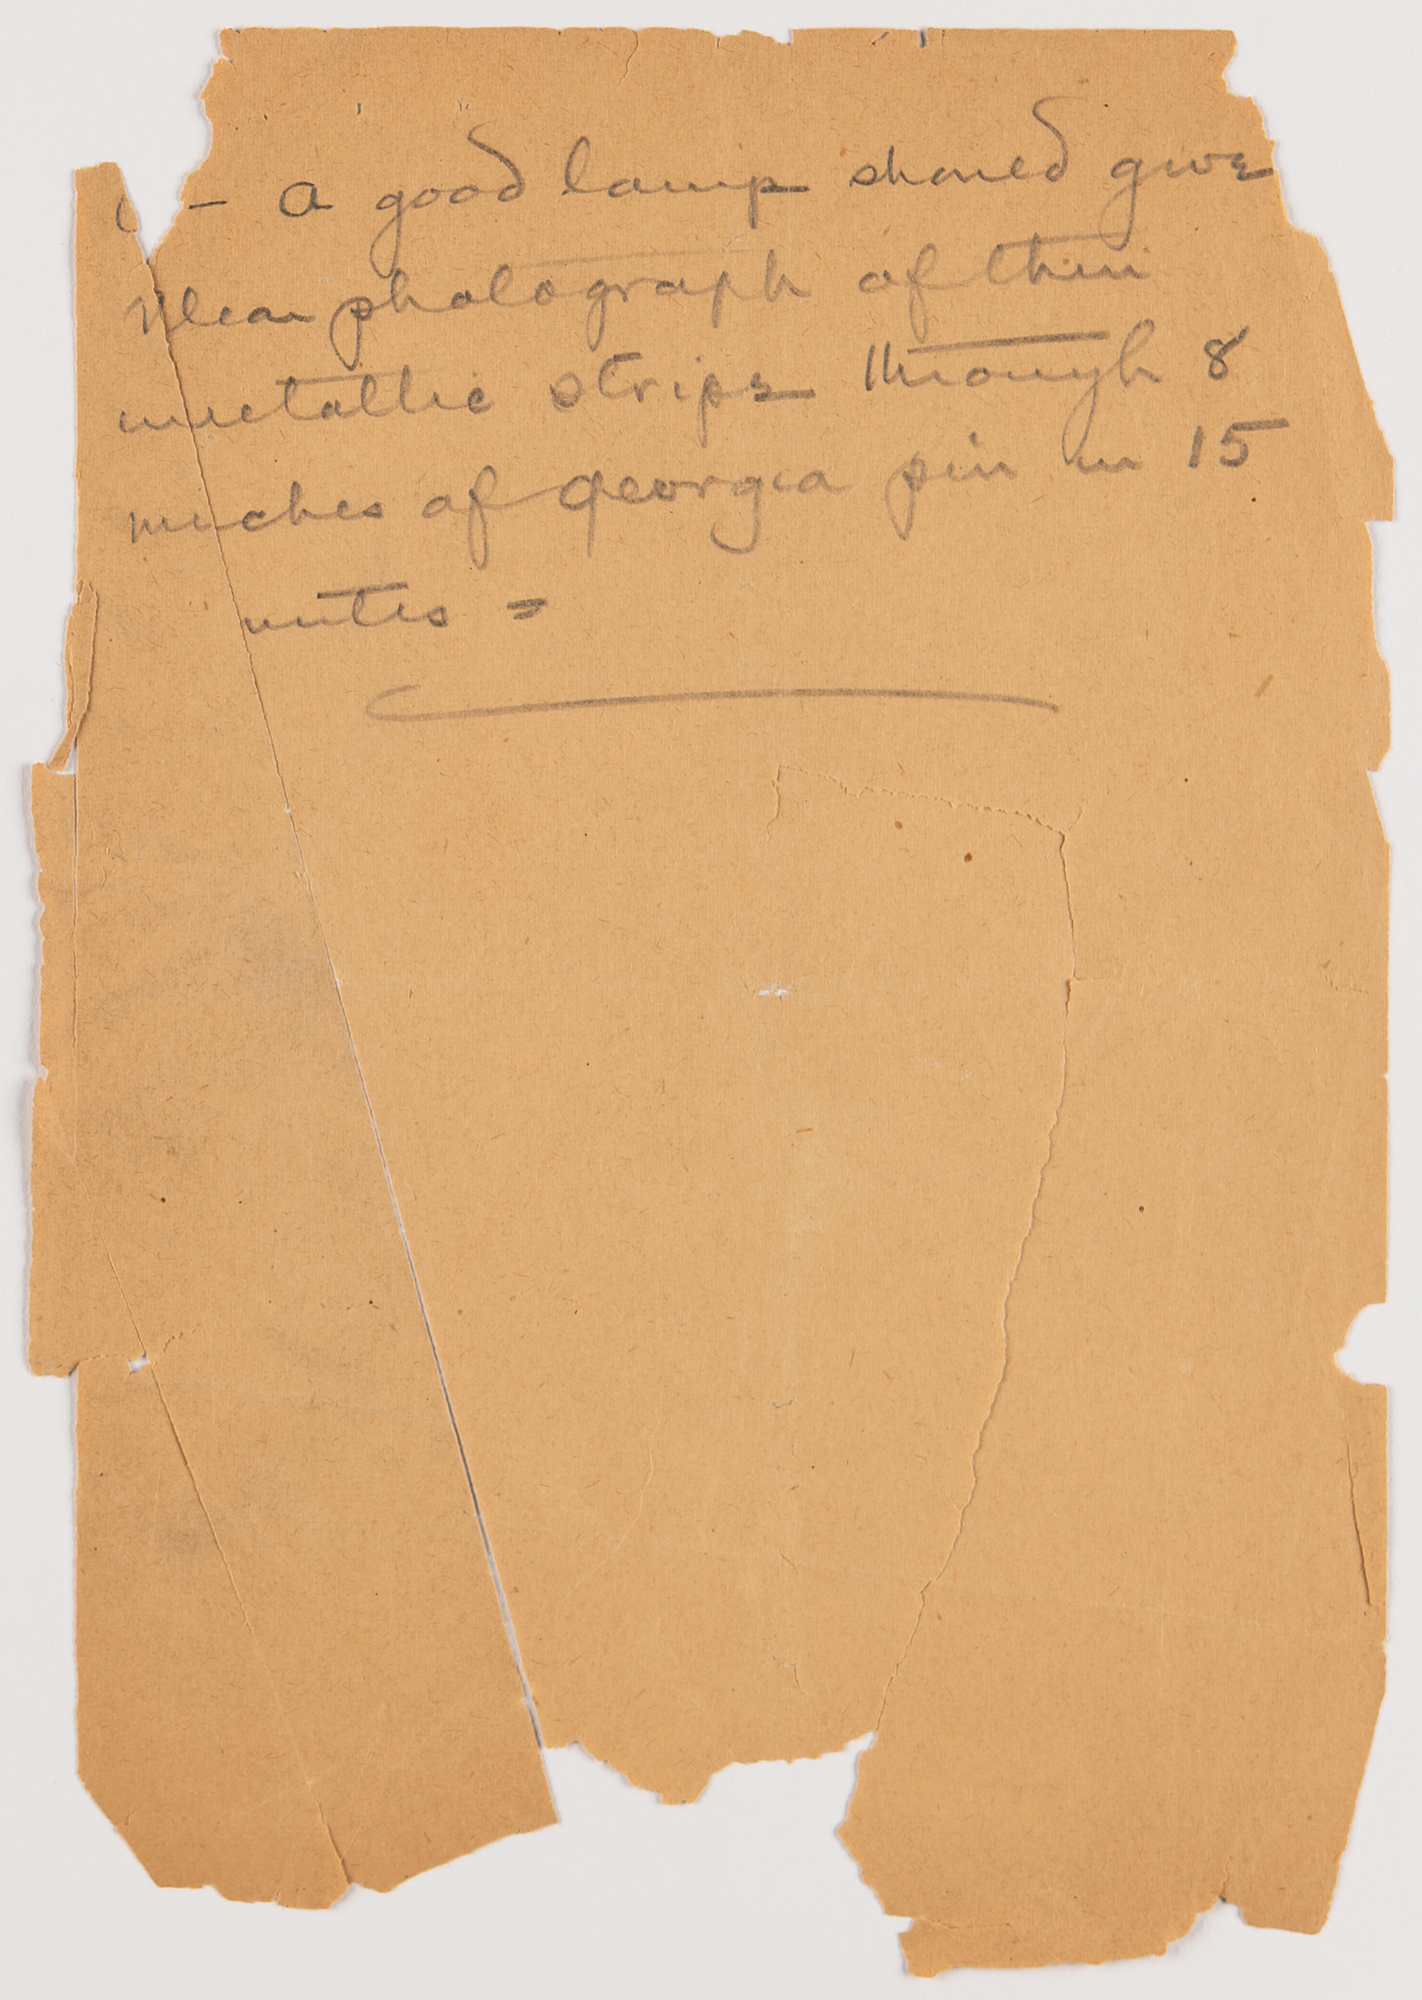 — a good lamp should give
clear photograph of thin
metallic strips through 8
inches of Georgia pin in 15
nutes =